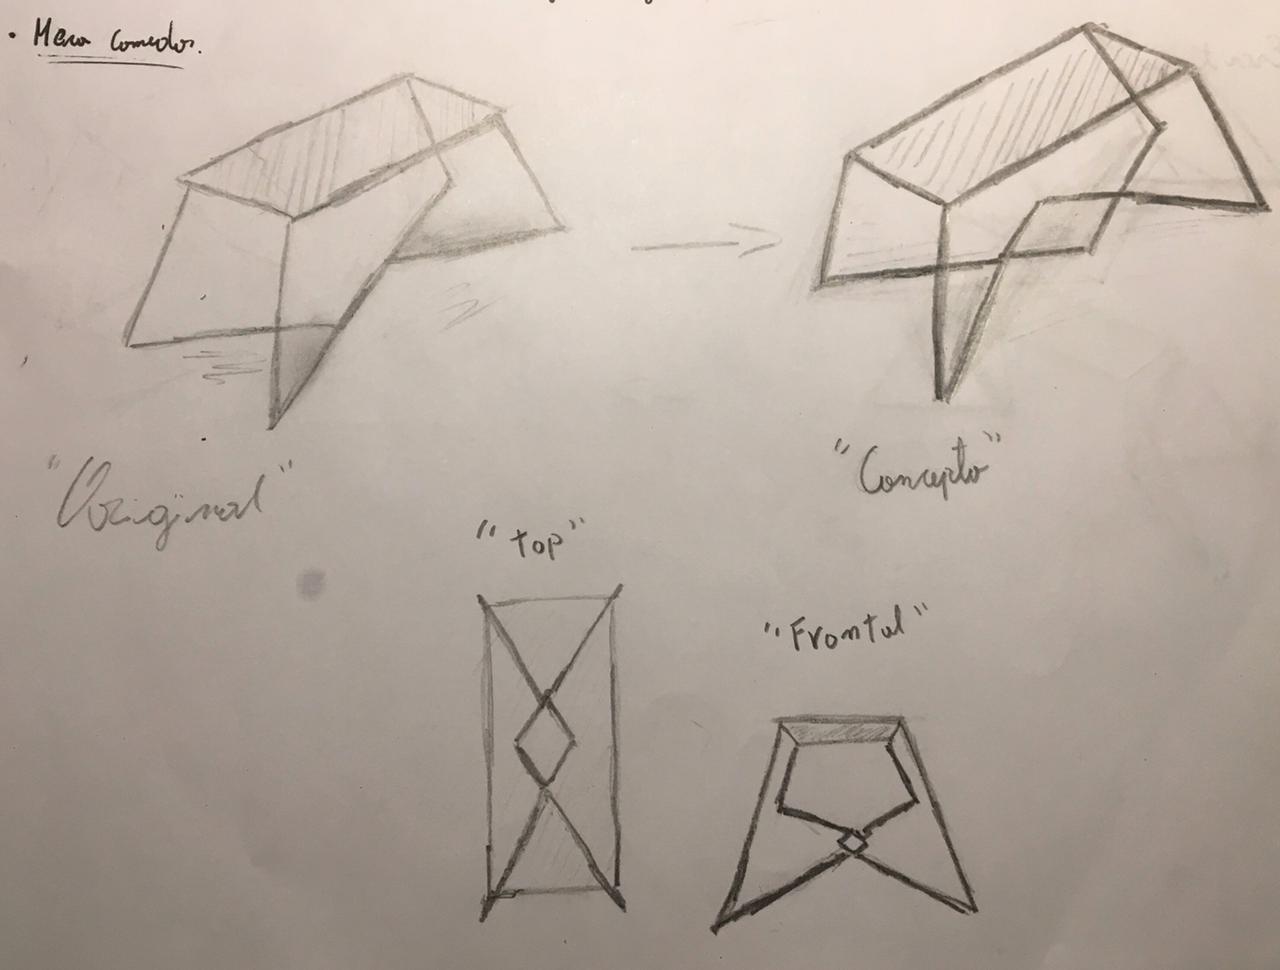 • Mesa comedor.
"Original"
"Concepto"
"top"
"Frontal"